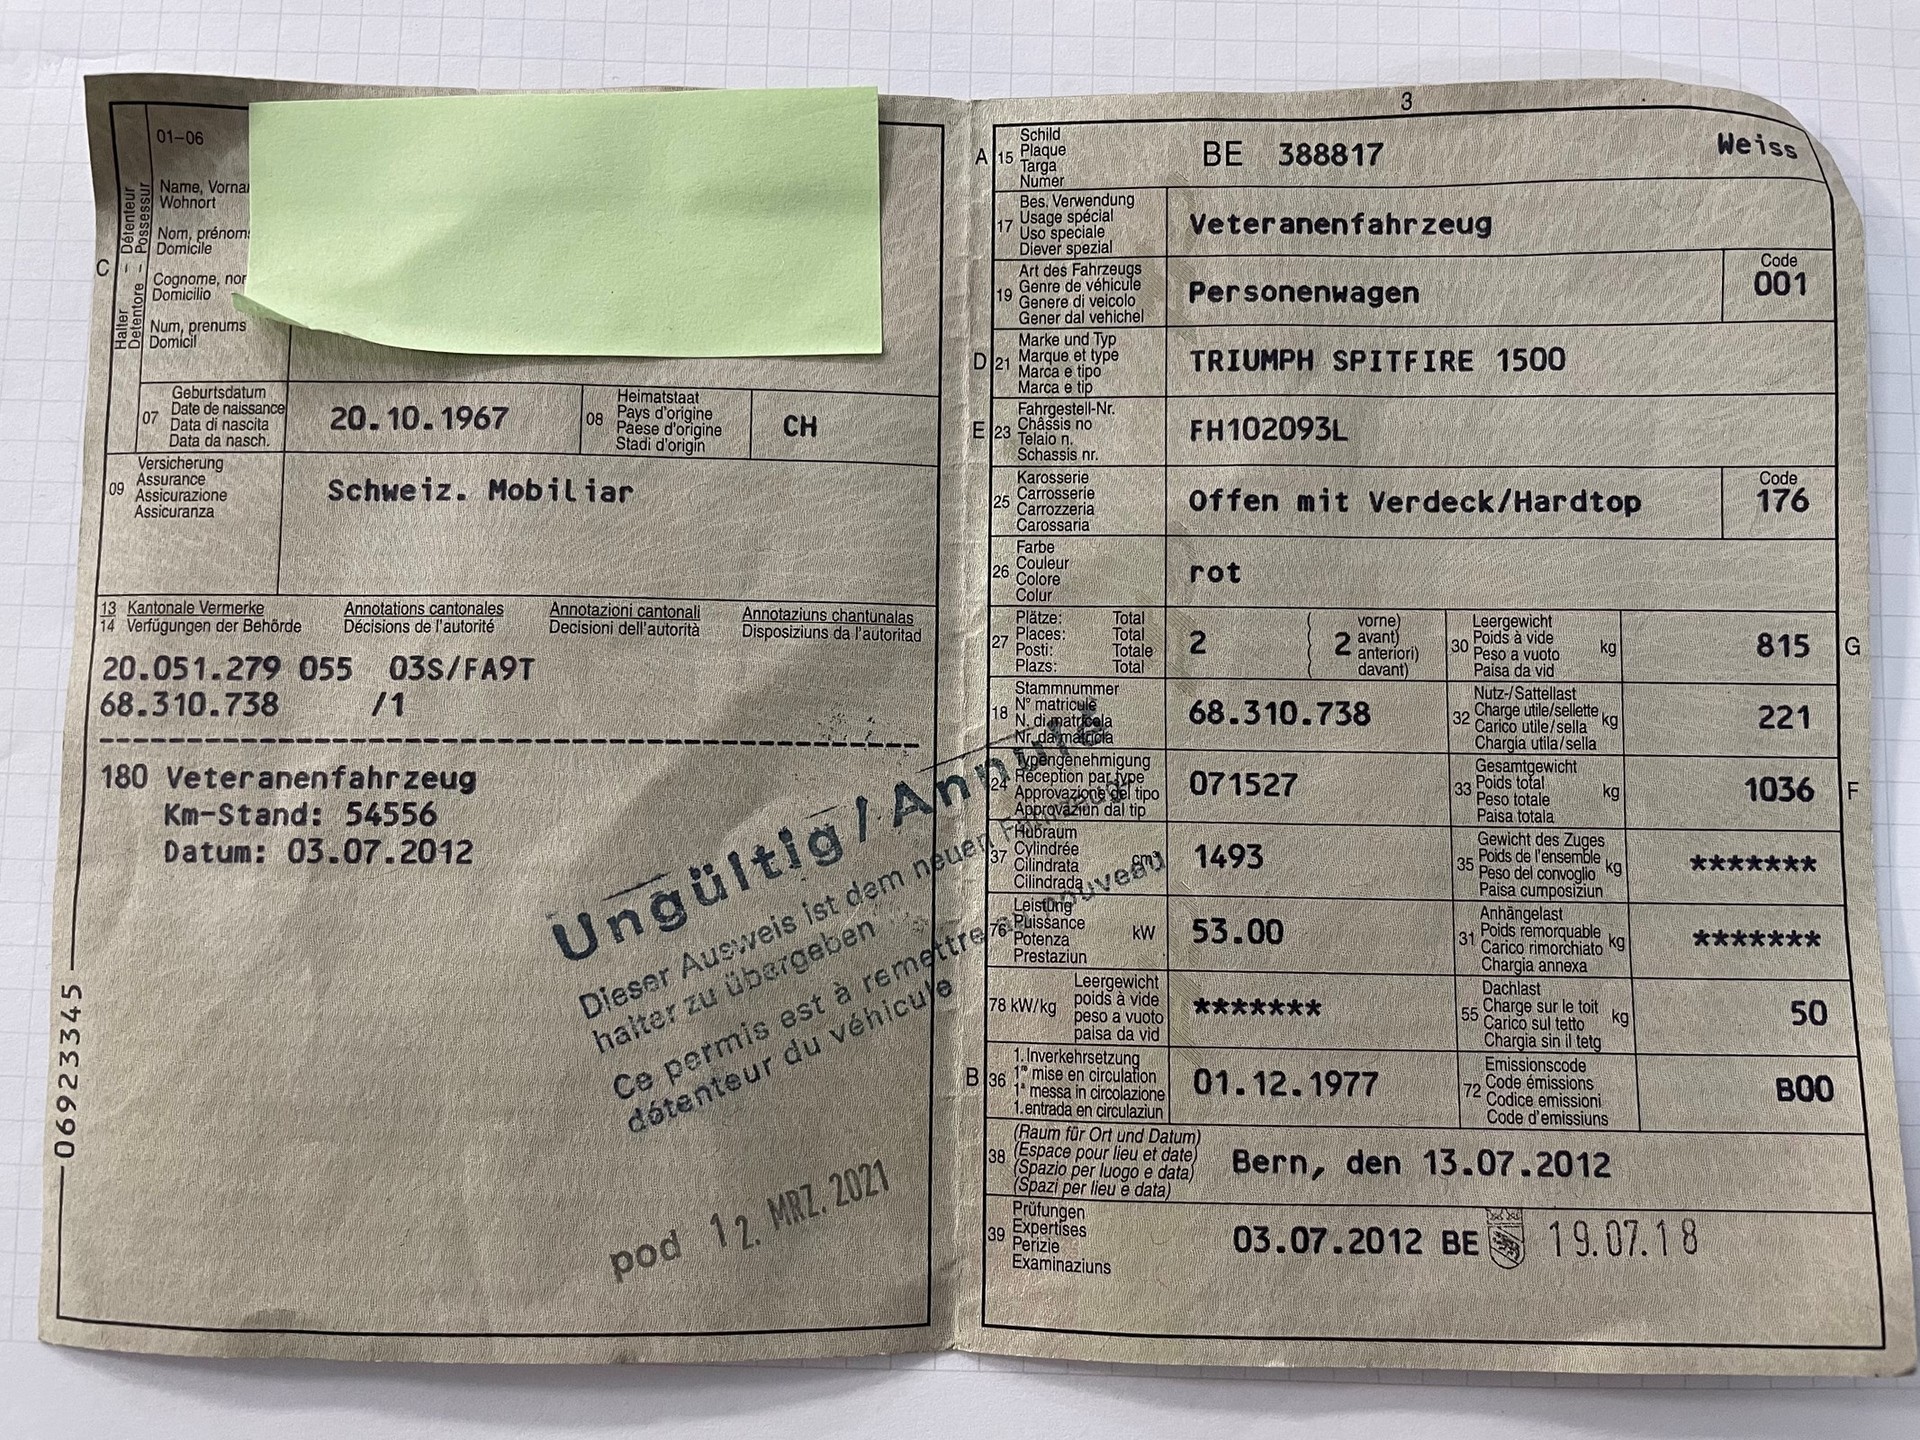 01–06
Halter – Détenteur
Detentore – Possessur
C
Name, Vorna
Wohnort
Nom, prénoms
Domicile
Cognome, nor
Domicilio
Num, prenums
Domicil
07 Geburtsdatum
Date de naissance
Data di nascita
Data da nasch.
20.10.1967
08 Heimatstaat
Pays d'origine
Paese d'origine
Stadi d'origin
CH
09 Versicherung
Assurance
Assicurazione
Assicuranza
Schweiz. Mobiliar
13 Kantonale Vermerke Annotations cantonales Annotazioni cantonali Annotaziuns chantunalas
14 Verfügungen der Behörde Décisions de l'autorité Decisioni dell'autorità Disposiziuns da l'autoritad
20.051.279 055 03S/FA9T
68.310.738 /1
180 Veteranenfahrzeug
Km-Stand: 54556
Datum: 03.07.2012
Ungültig / Annulé
Dieser Ausweis ist dem neuen Fahrzeug-
halter zu übergeben
Ce permis est à remettre au nouveau
détenteur du véhicule
pod 12. MRZ. 2021
06923345
3
A 15 Schild
Plaque
Targa
Numer
BE 388817 Weiss
17 Bes. Verwendung
Usage spécial
Uso speciale
Diever spezial
Veteranenfahrzeug
19 Art des Fahrzeugs
Genre de véhicule
Genere di veicolo
Gener dal vehichel
Personenwagen
Code
001
D 21 Marke und Typ
Marque et type
Marca e tipo
Marca e tip
TRIUMPH SPITFIRE 1500
E 23 Fahrgestell-Nr.
Châssis no
Telaio n.
Schassis nr.
FH102093L
25 Karosserie
Carrosserie
Carrozzeria
Carossaria
Offen mit Verdeck/Hardtop
Code
176
26 Farbe
Couleur
Colore
Colur
rot
27 Plätze: Total
Places: Total
Posti: Totale
Plazs: Total
2
( 2 vorne)
avant)
anteriori)
davant)
30 Leergewicht
Poids à vide kg
Peso a vuoto
Paisa da vid
815 G
18 Stammnummer
N° matricule
N. di matricola
Nr. da matricla
68.310.738
32 Nutz-/Sattellast
Charge utile/sellette kg
Carico utile/sella
Chargia utila/sella
221
24 Typengenehmigung
Réception par type
Approvazione del tipo
Approvaziun dal tip
071527
33 Gesamtgewicht
Poids total kg
Peso totale
Paisa totala
1036 F
37 Hubraum
Cylindrée cm³
Cilindrata
Cilindrada
1493
35 Gewicht des Zuges
Poids de l'ensemble kg
Peso del convoglio
Paisa cumposiziun
*******
76 Leistung
Puissance kW
Potenza
Prestaziun
53.00
31 Anhängelast
Poids remorquable kg
Carico rimorchiato
Chargia annexa
*******
78 kW/kg Leergewicht
poids à vide
peso a vuoto
paisa da vid
*******
55 Dachlast
Charge sur le toit kg
Carico sul tetto
Chargia sin il tetg
50
B 36 1. Inverkehrsetzung
1re mise en circulation
1a messa in circolazione
1. entrada en circulaziun
01.12.1977
72 Emissionscode
Code émissions
Codice emissioni
Code d'emissiuns
B00
38 (Raum für Ort und Datum)
(Espace pour lieu et date)
(Spazio per luogo e data)
(Spazi per lieu e data)
Bern, den 13.07.2012
39 Prüfungen
Expertises
Perizie
Examinaziuns
03.07.2012 BE 19.07.18